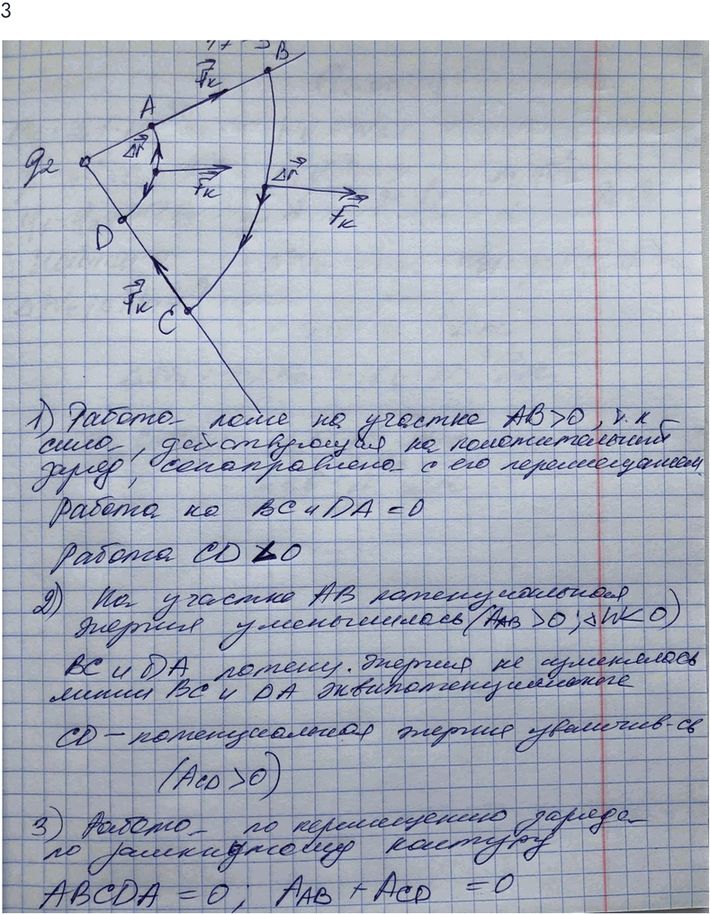 3
B
F⃗к
A
q2
Δr⃗
F⃗к
Δr⃗
F⃗к
D
F⃗к
C
1) Работа поля на участке AB>0, т.к
сила, действующая на положительный
заряд, сонаправлена с его перемещением
Работа на BC и DA = 0
Работа CD < 0
2) На участке AB потенциальная
энергия уменьшилась (AAB >0; ΔW<0)
BC и DA потенц. энергия не изменялась
линии BC и DA эквипотенциальные
CD – потенциальная энергия увеличив-сь
(ACD >0)
3) Работа по перемещению заряда
по замкнутому контуру
ABCDA = 0; AAB + ACD = 0